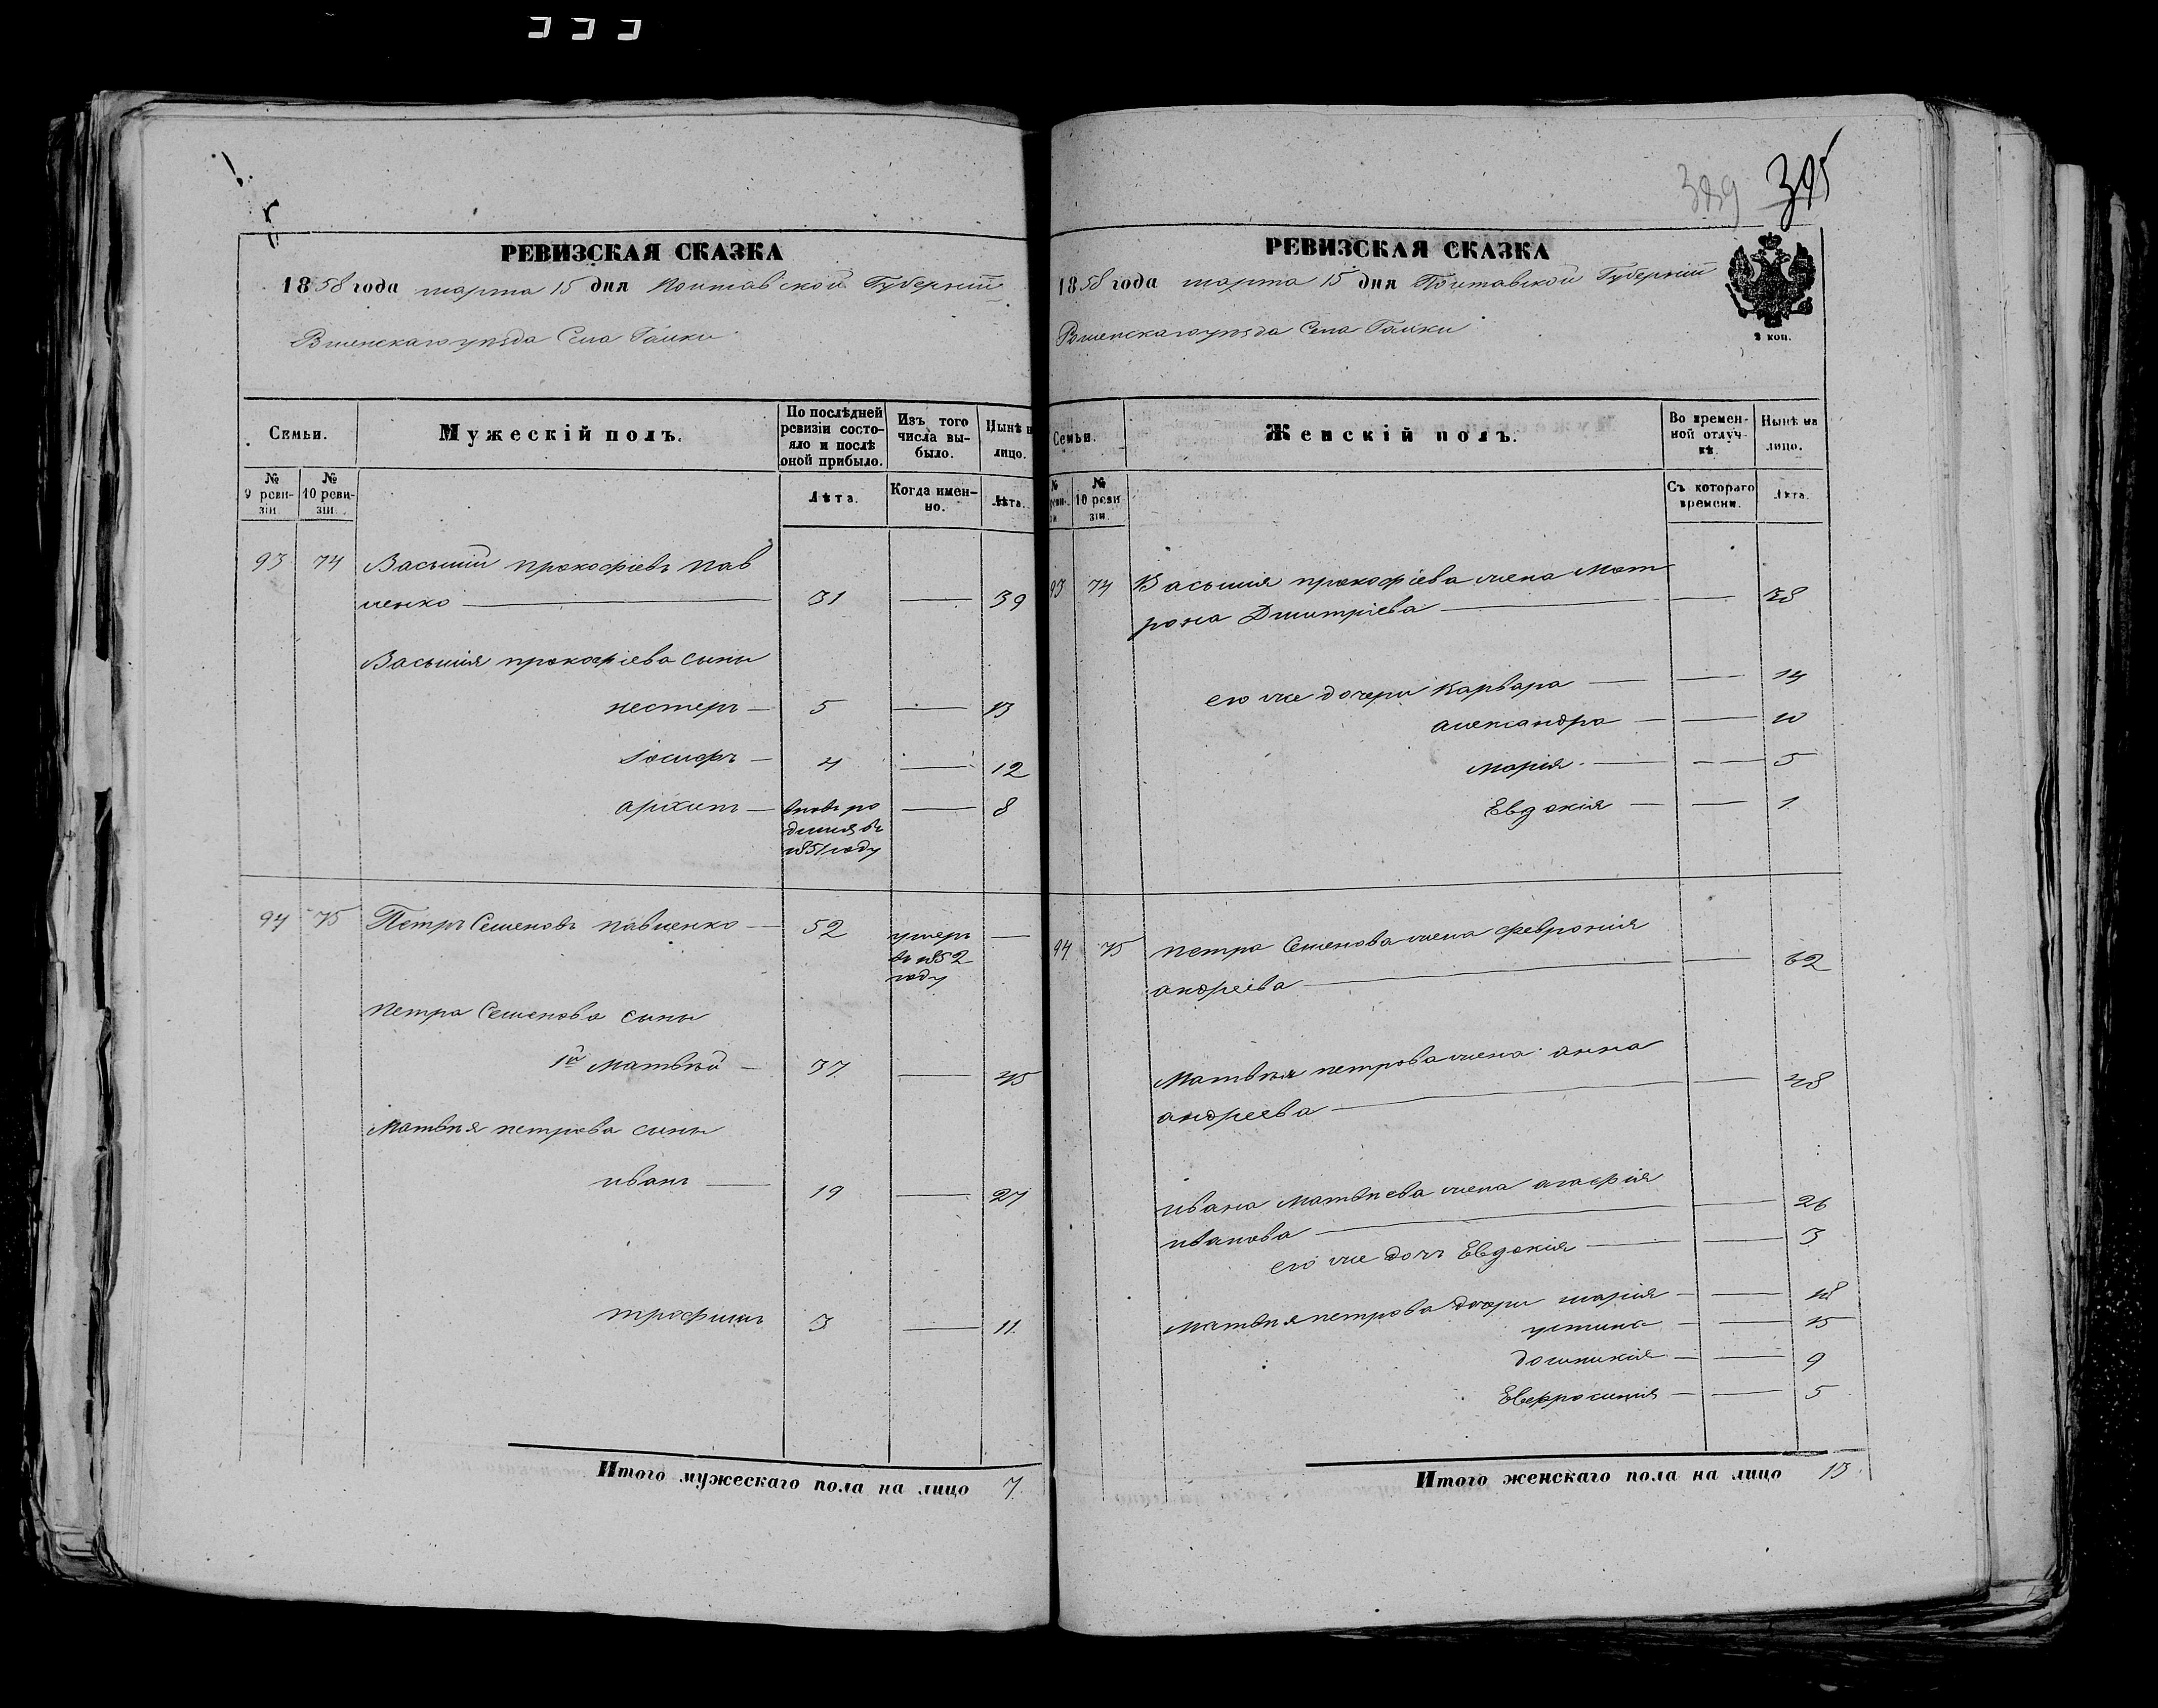 РЕВИЗСКАЯ СКАЗКА
1858 года марта 15 дня Полтавской Губернии
Роменскаго уѣзда Села Гайки
Семьи.
Мужескій полъ.
По послѣдней ревизіи состояло и послѣ оной прибыло.
Изъ того числа выбыло.
Нынѣ н
лицо.
№ 9 ревизіи.
№ 10 ревизіи.
Лѣта.
Когда именно.
Лѣта.
93 74 Василій прокофіевъ пав
ленко — 31 — 39
Василія прокофіева сыны
нестеръ — 5 — 13
Іосифъ — 4 — 12
архипъ — вновь ро — 8
дился въ
1851 году
94 75 Петръ Семеновъ павленко — 52 умеръ —
въ 1852
году
петра Семенова сыны
1й Матвѣй — 37 — 45
Матвѣя петрова сыны
иванъ — 19 — 27
трофимъ 3 — 11
Итого мужескаго пола на лицо 7.
389 395
РЕВИЗСКАЯ СКАЗКА
1858 года марта 15 дня Полтавской Губерніи
Роменскаго уѣзда Села Гайки
2 коп.
Семьи.
Женскій полъ.
Во времен-
ной отлуч-
кѣ.
Нынѣ на
лицо.
№
реви-
зіи
№
10 реви
зіи.
Съ котораго
времени.
Лѣта.
93 74 Василія прокофіева жена Мат
рона Дмитріева — — 38
его же дочери Варвара — — 14
александра — — 10
марія. — — 5
Евдокія — — 1
94 75 петра Семенова жена феврония
андреева — — 62
Матвѣя петрова жена анна
андреева — — 48
ивана Матвѣева жена агафія
иванова — — 26
его же дочь Евдокія — — 3
Матвѣя петрова дочери марія — — 18
устина — — 15
домникія — — 9
Евфросинія — — 5
Итого женскаго пола на лицо 13.